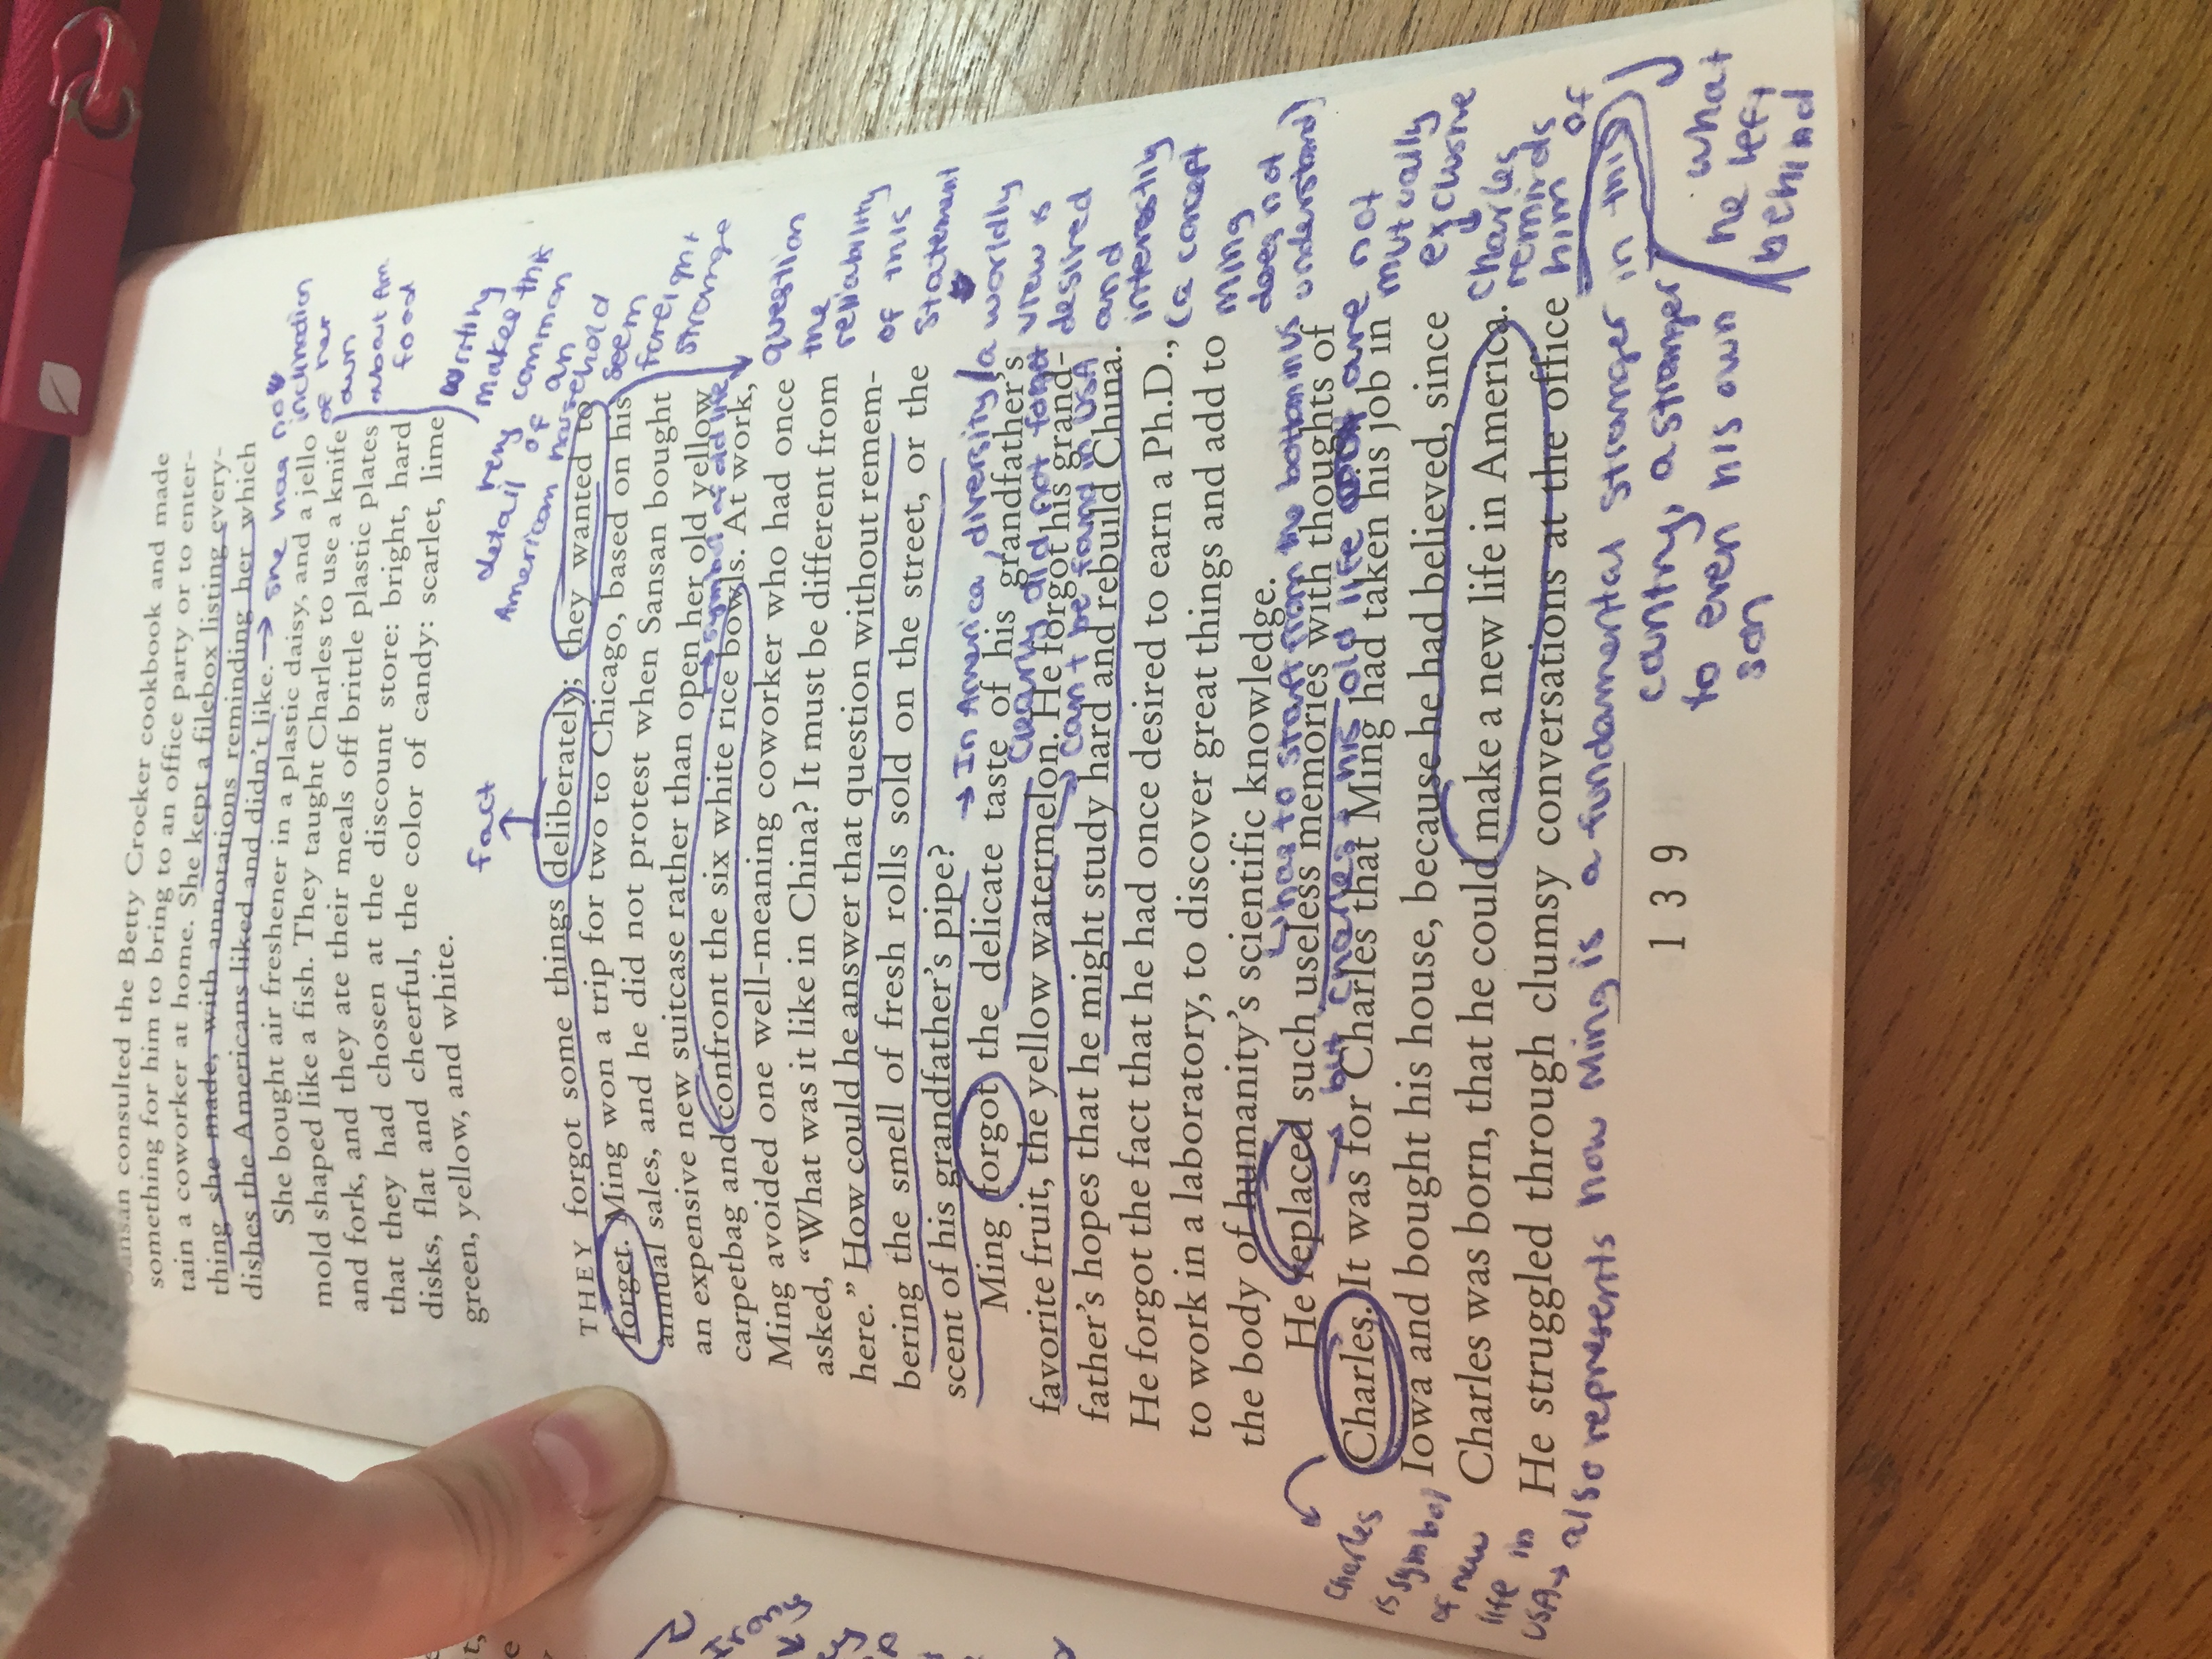 consulted the Betty Crocker cookbook and made
something for him to bring to an office party or to enter-
tain a coworker at home. She kept a filebox listing every-
thing she made, with annotations reminding her which
dishes the Americans liked and didn't like.
→ she has no inclination of her own about Am food
She bought air freshener in a plastic daisy, and a jello
mold shaped like a fish. They taught Charles to use a knife
and fork, and they ate their meals off brittle plastic plates
that they had chosen at the discount store: bright, hard
disks, flat and cheerful, the color of candy: scarlet, lime
green, yellow, and white.
writing
makes the
detail
of common
American household
seem
foreign +
strange
fact
THEY forgot some things deliberately; they wanted to
forget. Ming won a trip for two to Chicago, based on his
annual sales, and he did not protest when Sansan bought
an expensive new suitcase rather than open her old yellow
carpetbag and confront the six white rice bowls. At work,
→ symbol of old life
Ming avoided one well-meaning coworker who had once
asked, "What was it like in China? It must be different from
here." How could he answer that question without remem-
bering the smell of fresh rolls sold on the street, or the
scent of his grandfather's pipe?
question
the
reliability
of this
statement
→ In America, diversity/a worldly
view is
desired
and
interestily
(a concept
Ming
does not
understand)
Ming forgot the delicate taste of his grandfather's
favorite fruit, the yellow watermelon. He forgot his grand-
father's hopes that he might study hard and rebuild China.
clearly did not forget
→ can't be found in USA
He forgot the fact that he had once desired to earn a Ph.D.,
to work in a laboratory, to discover great things and add to
the body of humanity's scientific knowledge.
↳ has to start from the bottom in US
He replaced such useless memories with thoughts of
Charles. It was for Charles that Ming had taken his job in
Iowa and bought his house, because he had believed, since
Charles was born, that he could make a new life in America.
He struggled through clumsy conversations at the office
→ but Charles + his old life are not
mutually
exclusive
Charles
reminds
him of
what
he left
behind
Charles
is symbol
of new
life in
USA → also represents how Ming is a fundamental stranger in this
country, a stranger
to even his own
son
139